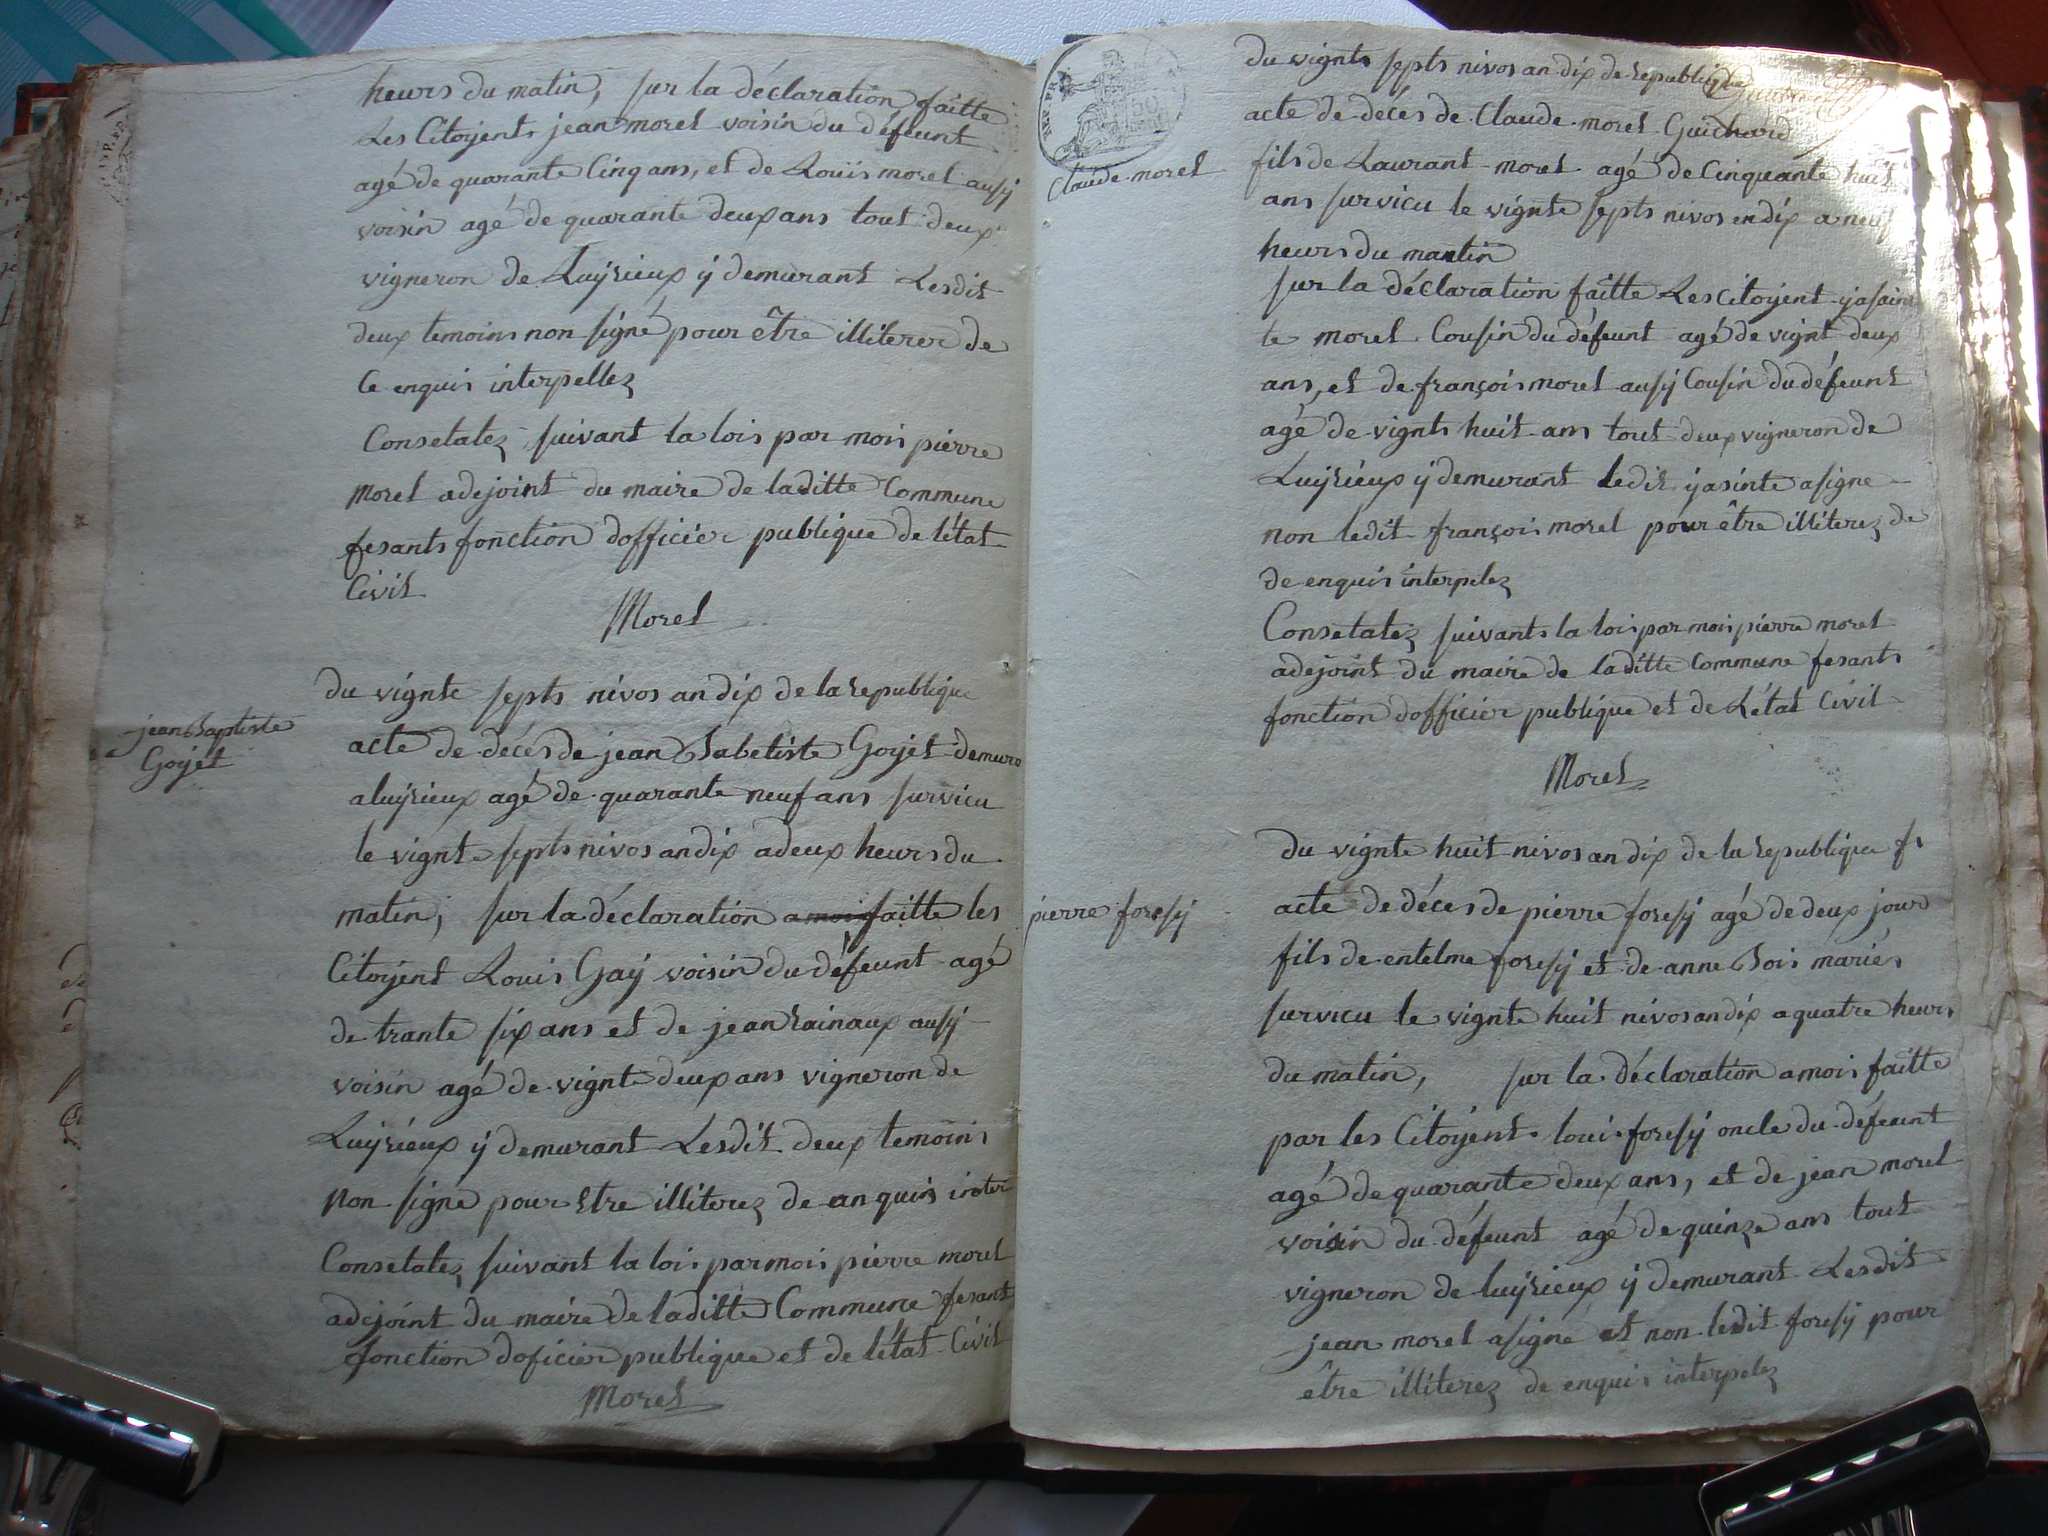 heurs du matin, sur la déclaration faitte
Les Citoyents jean morel voisin du défeunt
agé de quarante Cinq ans, et de Louis morel ausij
voisin agé de quarante deux ans tout deux
vigneron de Luijrieux ij demurant Lesdit
deux temoins non signé pour être illiterer de
Ce enquis interpellez
Consetatez suivant la lois par mois pierre
Morel adejoint du maire de laditte Commune
fesants fonction dofficier publique de létat
Civil
Morel
jean Baptiste
Goijet
du vignte septs nivos an dix de la republique
acte de décés de jean Babetiste Goijet demura
a luijrieux agé de quarante neuf ans survicu
le vignte septs nivos an dix a deux heurs du
matin, sur la déclaration a moi faitte les
Citoijent Louis Gaij voisin du défeunt agé
de trante six ans et de jean rainaux ausij
voisin agé de vignte deux ans vigneron de
Luijrieux ij demurant Lesdit deux temoins
non signe pour etre illiterez de an quis inter
Consetatez suivant la lois par mois pierre morel
adejoint du maire de laditte Commune fesant
fonction doficier publique et de létat Civil
Morel
REP. FR.
50
Claude morel
du vignts septs nivos an dix de republique
acte de décés de Claude morel Guichard
fils de Laurant morel agé de Cinquante huit
ans survicu le vignte septs nivos en dix a neuf
heurs du mantin
sur la déclaration faitte Les Citoijent ijasain
te morel Cousin du défeunt agé de vignt deux
ans, et de françois morel ausij Cousin du défeunt
agé de vignts huit ans tout deux vigneron de
Luijrieux ij demurant ledit ijasinte a signe
non ledit françois morel pour être illiterez de
de enquis interpelez
Consetatez suivants la lois par mois pierre morel
adejoint du maire de laditte Commune fesants
fonction dofficier publique et de Létat Civil
Morel
pierre foresij
du vignte huit nivos an dix de la republique fr
acte de déces de pierre foresij agé de deux jour
fils de entelme foresij et de anne Bois mariés
survicu le vignte huit nivos an dix a quatre heurs
du matin, sur la déclaration a mois faitte
par les Citoijents loui foresij oncle du défeunt
agé de quarante deux ans, et de jean morel
voisin du défeunt agé de quinze ans tout
vigneron de luijrieux ij demurant Lesdit
jean morel a signé et non ledit foresij pour
être illiterez de enquis interpelez